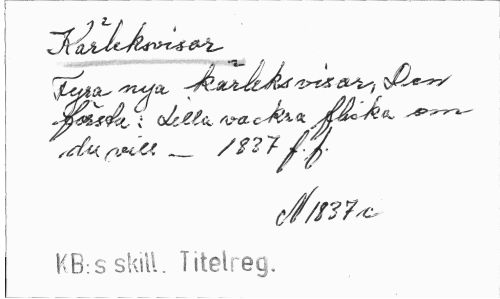 Kärleksvisor
Fyra nya kärleksvisor, Den
första: Lilla vackra flicka om
du vill — 1837 f.f.
N 1837 c
KB:s skill. Titelreg.